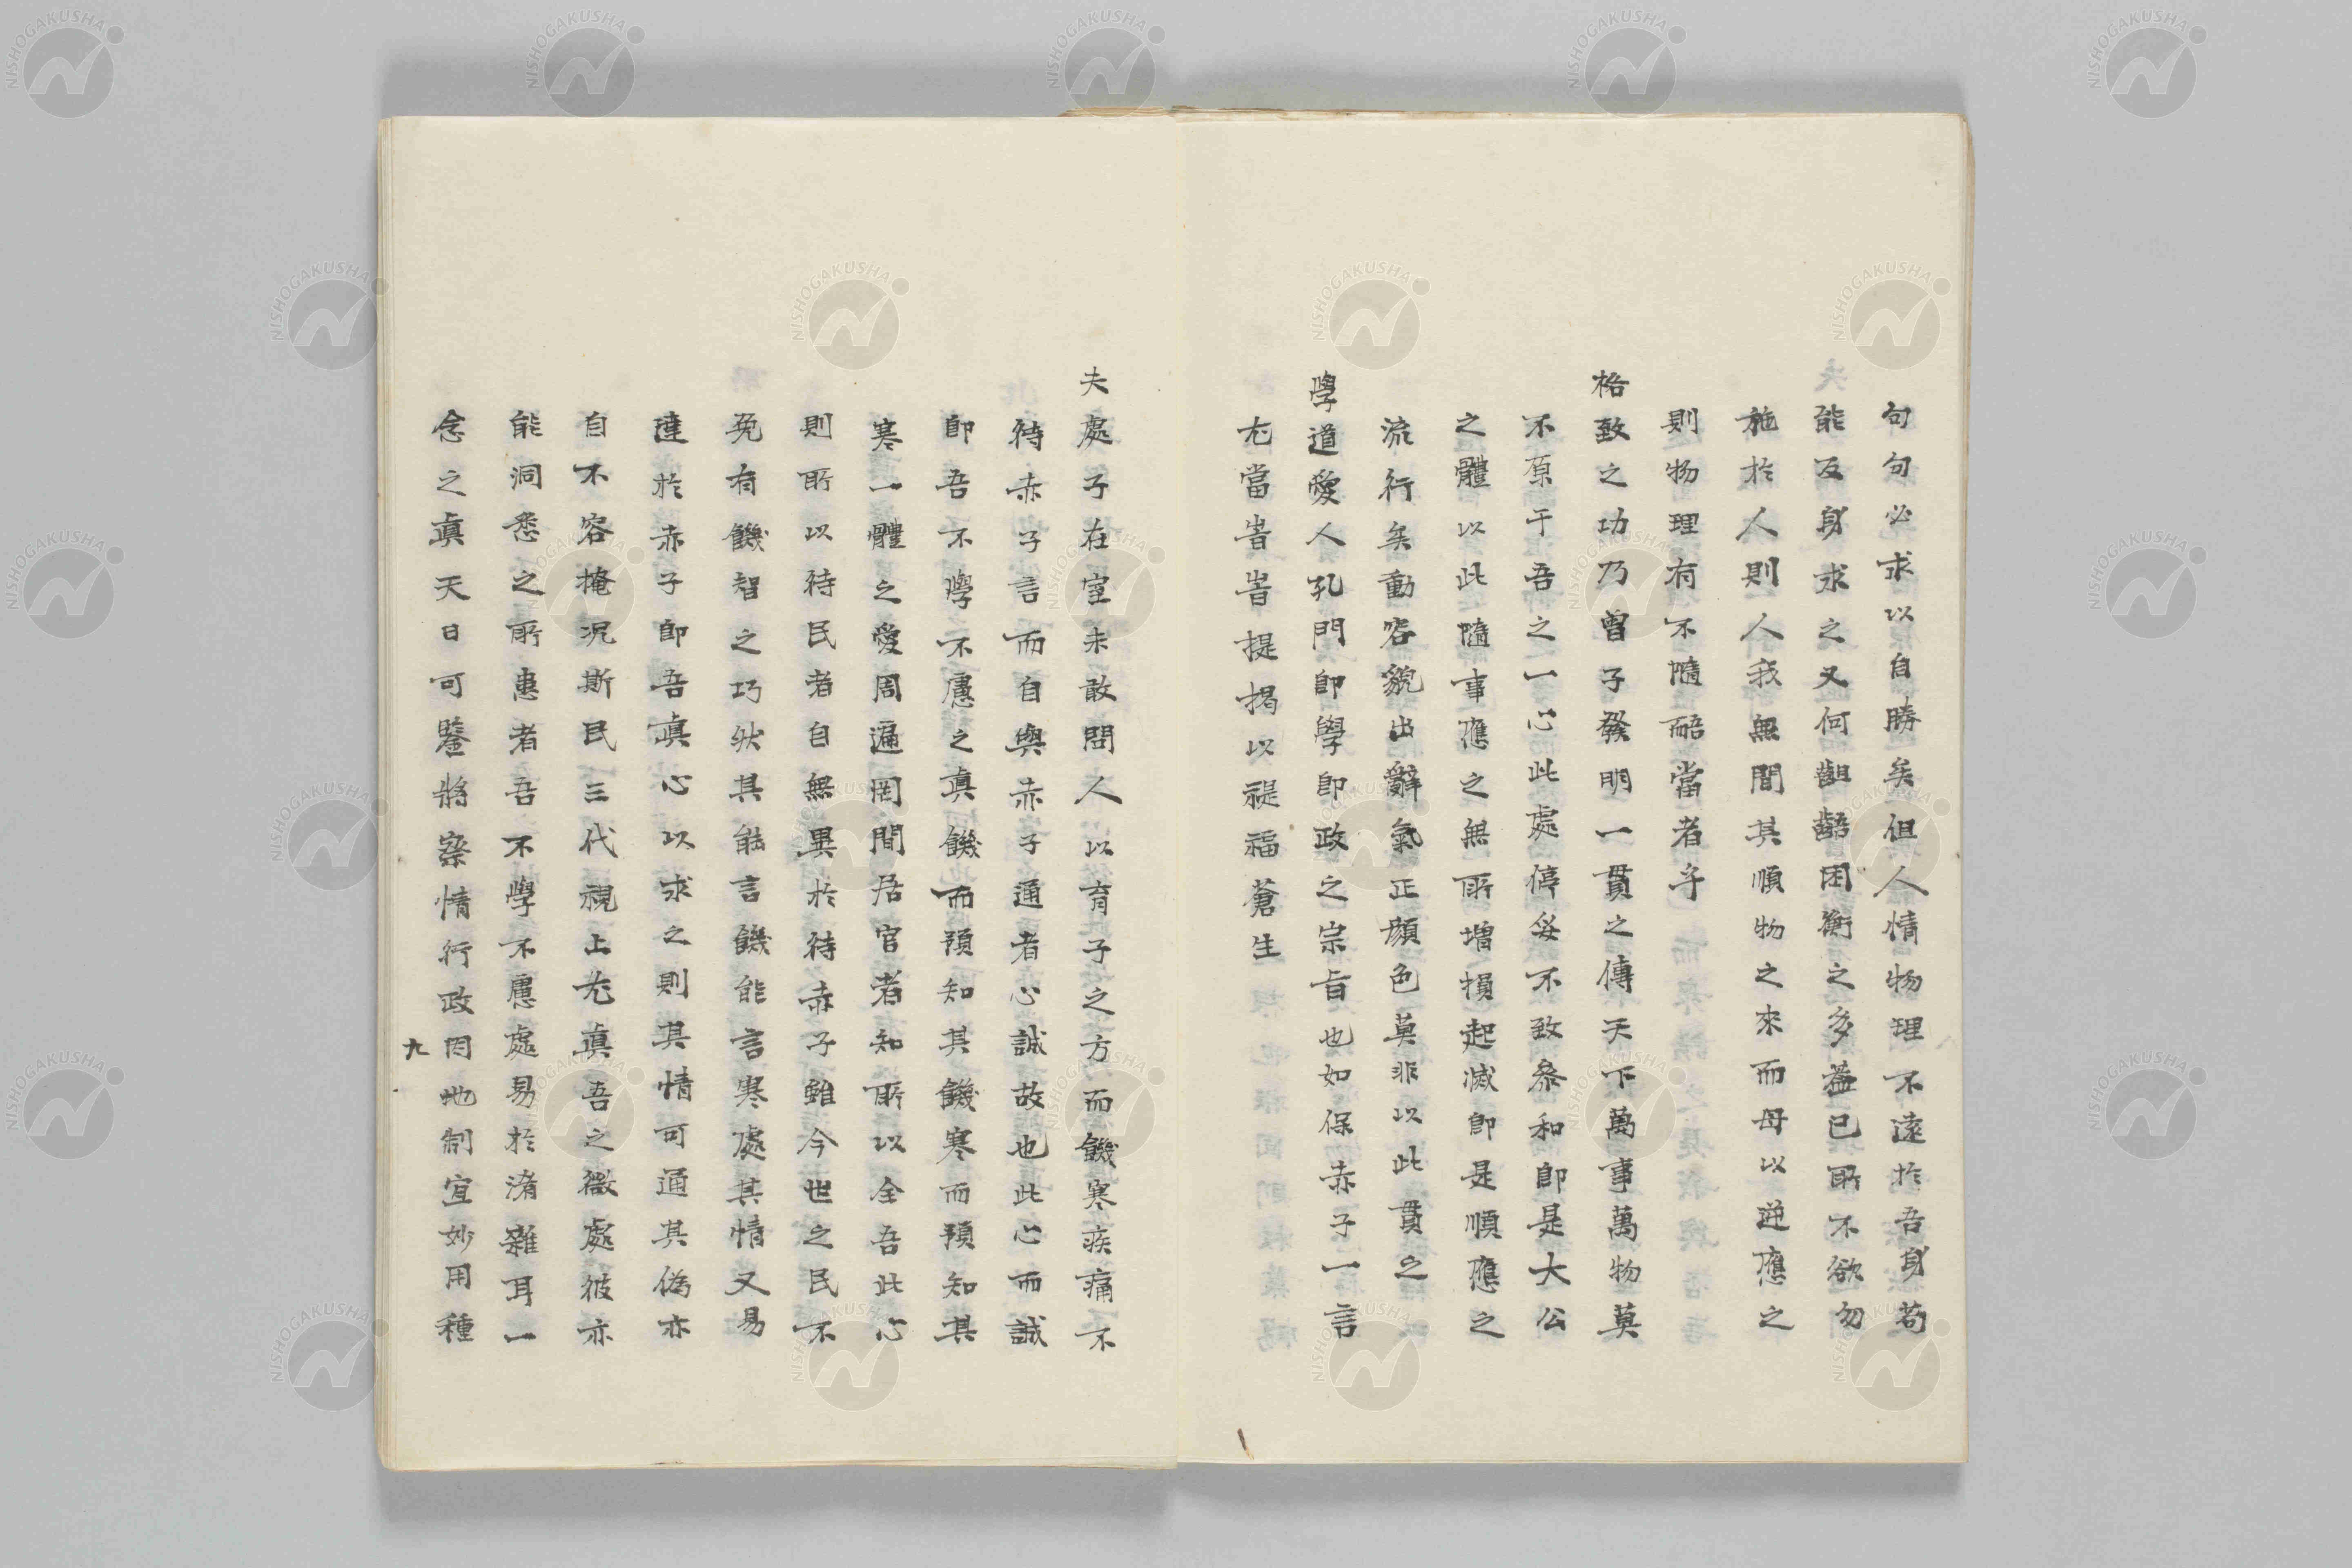 句句必求以自勝矣但人情物理不遠於吾身苟
能反身求之又何齟齬困衡之多蓋已所不欲勿
施於人則人我無間其順物之來而毋以逆應之
則物理有不隨語當者乎
格致之功乃曾子發明一貫之傳天下萬事萬物莫
不原于吾之一心此處停妥不致參和即是大公
之體以此隨事應之無所増損起滅即是順應之
流行矣動容貌出辭氣正顔色莫非以此貫之
學道愛人孔門即學即政之宗旨也如保赤子一言
尤當旹旹提掲以禔福蒼生
夫處子在室未敢問人以育子之方而饑寒疾痛不
待赤子言而自與赤子通者心誠故也此心而誠
即吾不學不慮之眞饑而預知其饑寒而預知其
寒一體之愛周遍罔間居官者知所以全吾此心
則所以待民者自無異於待赤子雖今世之民不
免有饑智之巧然其能言饑能言寒處其情又易
達於赤子即吾眞心以求之則其情可通其偽亦
自不容掩况斯民三代視上尤眞吾之微處彼亦
能洞悉之所患者吾不學不慮處易於淆雜耳一
念之眞天日可鑒將察情行政因地制宜妙用種
九
NISHOGAKUSHA